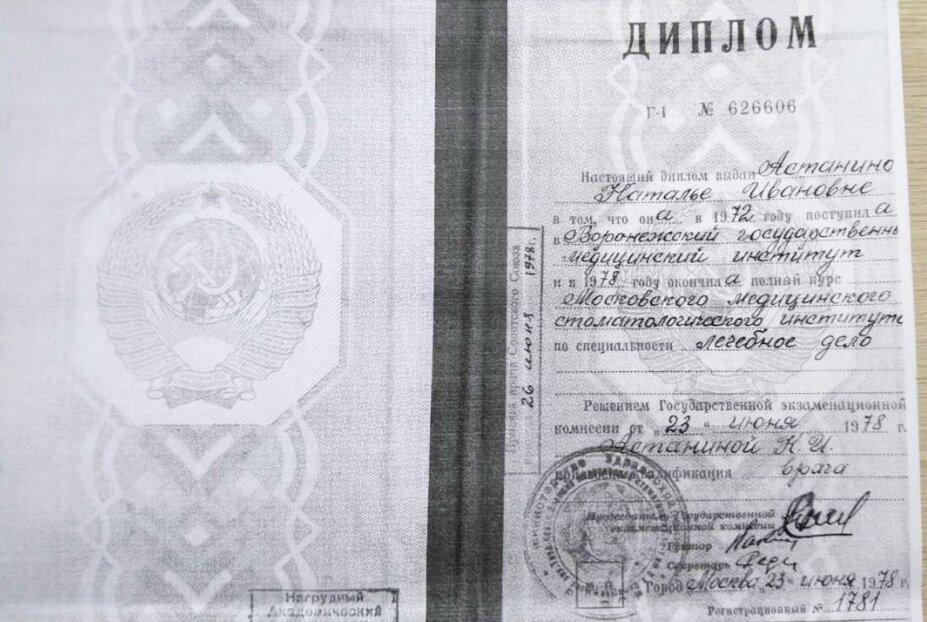 ДИПЛОМ
Г-I № 626606
Настоящий диплом выдан Астанино
Наталье Ивановне
в том, что она в 1972 году поступила
в Воронежский государственн
медицинский институт
и в 1978 году окончила полный курс
Московского медицинского
стоматологического института
по специальности лечебное дело
Решением Государственной экзаменационной
комиссии от „23" июня 1978 г.
Астаниной Н. И.
квалификация врача
Председатель Государственной
экзаменационной комиссии
Ректор
Секретарь
Город Москва, 23 июня 1978 г.
Регистрационный № 1781
26 июня 1978г.
Врача Советского Союза
М. П.
Нагрудный
Академический